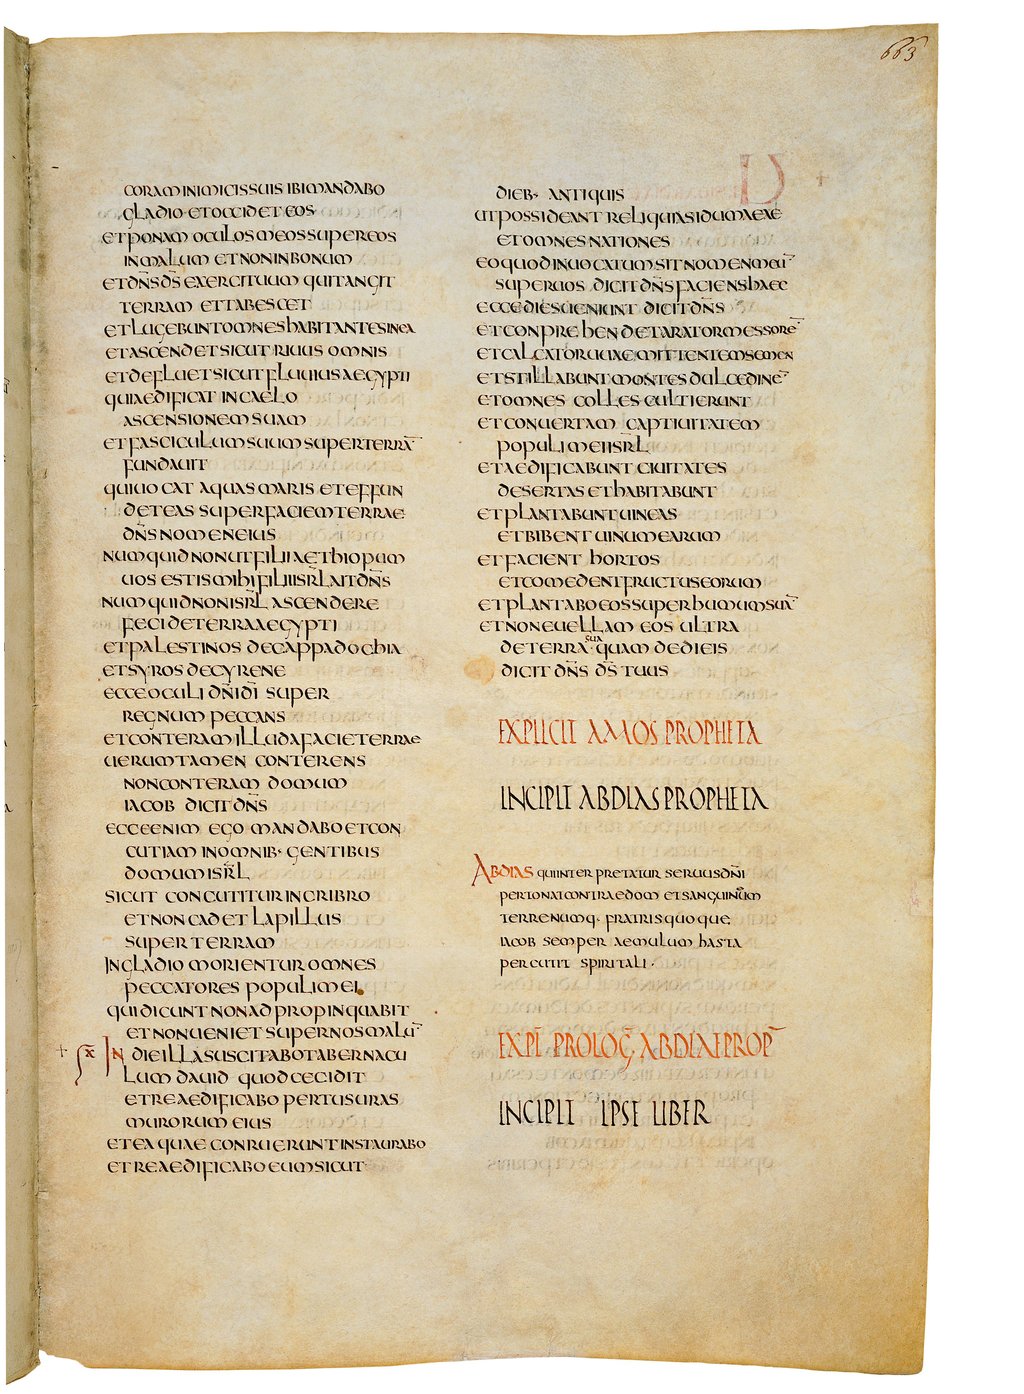 663
CORAM INIMICIS SUIS IBI MANDABO
GLADIO ET OCCIDET EOS
ET PONAM OCULOS MEOS SUPER EOS
IN MALUM ET NON IN BONUM
ET DN̄S D̄S EXERCITUUM QUI TANGIT
TERRAM ET TABESCET
ET LUGEBUNT OMNES HABITANTES IN EA
ET ASCENDET SICUT RIUUS OMNIS
ET DEFLUET SICUT FLUUIUS AEGYPTI
QUI AEDIFICAT IN CAELO
ASCENSIONEM SUAM
ET FASCICULUM SUUM SUPER TERRĀ
FUNDAUIT
QUI UOCAT AQUAS MARIS ET EFFUN
DET EAS SUPER FACIEM TERRAE
DN̄S NOMEN EIUS
NUMQUID NON UT FILII AETHIOPUM
UOS ESTIS MIHI FILII ISR̄L AIT DN̄S
NUMQUID NON ISR̄L ASCENDERE
FECI DE TERRA AEGYPTI
ET PALESTINOS DE CAPPADOCHIA
ET SYROS DE CYRENE
ECCE OCULI DN̄I D̄I SUPER
REGNUM PECCANS
ET CONTERAM ILLUD A FACIE TERRAE
UERUMTAMEN CONTERENS
NON CONTERAM DOMUM
IACOB DICIT DN̄S
ECCE ENIM EGO MANDABO ET CON
CUTIAM IN OMNIB· GENTIBUS
DOMUM ISR̄L
SICUT CONCUTITUR IN CRIBRO
ET NON CADET LAPILLUS
SUPER TERRAM
IN GLADIO MORIENTUR OMNES
PECCATORES POPULI MEI
QUI DICUNT NON ADPROPINQUABIT
ET NON UENIET SUPER NOS MALŪ
IN DIE ILLA SUSCITABO TABERNACU
LUM DAUID QUOD CECIDIT
ET REAEDIFICABO APERTUSURAS
MURORUM EIUS
ET EA QUAE CONRUERUNT INSTAURABO
ET REAEDIFICABO EUM SICUT
DIEB· ANTIQUIS
UT POSSIDEANT RELIQUIAS IDUMAEAE
ET OMNES NATIONES
EO QUOD INUOCATUM SIT NOMEN MEŪ
SUPER UOS DICIT DN̄S FACIENS HAEC
ECCE DIES UENIUNT DICIT DN̄S
ET CONPREHENDET ARATOR MESSORĒ
ET CALCATOR UUAE MITTENTEM SEMEN
ET STILLABUNT MONTES DULCEDINĒ
ET OMNES COLLES CULTI ERUNT
ET CONUERTAM CAPTIUITATEM
POPULI MEI ISR̄L
ET AEDIFICABUNT CIUITATES
DESERTAS ET HABITABUNT
ET PLANTABUNT UINEAS
ET BIBENT UINUM EARUM
ET FACIENT HORTOS
ET COMEDENT FRUCTUS EORUM
ET PLANTABO EOS SUPER HUMUM SUĀ
ET NON EUELLAM EOS ULTRA
DE TERRA SUA QUAM DEDI EIS
DICIT DN̄S D̄S TUUS
EXPLICIT AMOS PROPHETA
INCIPIT ABDIAS PROPHETA
ABDIAS QUI INTERPRETATUR SERUUS DN̄I
PERTONAT CONTRA EDOM ET SANGUINEUM
TERRENUMQ· FRATRIS QUOQUE
IACOB SEMPER AEMULUM HASTA
PERCUTIT SPIRITALI·
EXPL̄ PROLOḠ ABDIAE PROP̄
INCIPIT IPSE LIBER